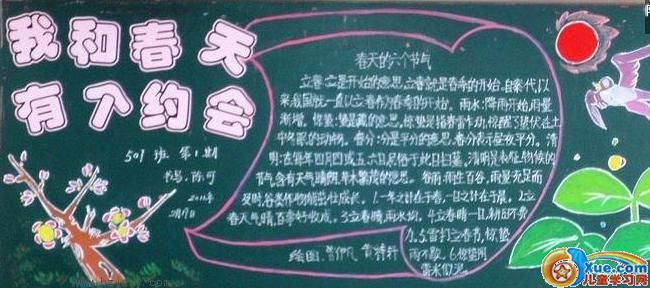 我和春天
有个约会
501班 第1期
书写:陈可
2月17日
春天的六个节气
立春:立是开始的意思,立春就是春季的开始。自秦代以
来,我国就一直以立春作为春季的开始。雨水:降雨开始,雨量
渐增。惊蛰:蛰是藏的意思,惊蛰是指春雷乍动,惊醒了蛰伏在土
中冬眠的动物。春分:分是平分的意思。春分表示昼夜平分。清
明:在每年四月四或五、六日,民俗于此日扫墓。清明是表征物候的
节气,含有天气晴朗、草木繁茂的意思。谷雨:雨生百谷,雨量充足而
及时,谷类作物能茁壮成长。1.一年之计在于春,一日之计在于晨。2.立
春天气晴,百事好收成。3.立春晴,雨水均。4.立春晴一日,
力。5.雷打立春节,惊蛰
雨不歇。6.惊蛰闻
雷米似泥。
绘图:
Xue.com
儿童学习网